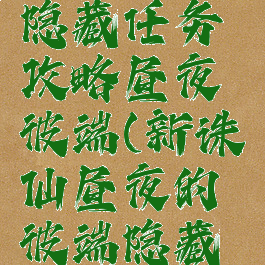 隐藏任务
攻略昼夜
彼端(新诛
仙昼夜的
彼端隐藏